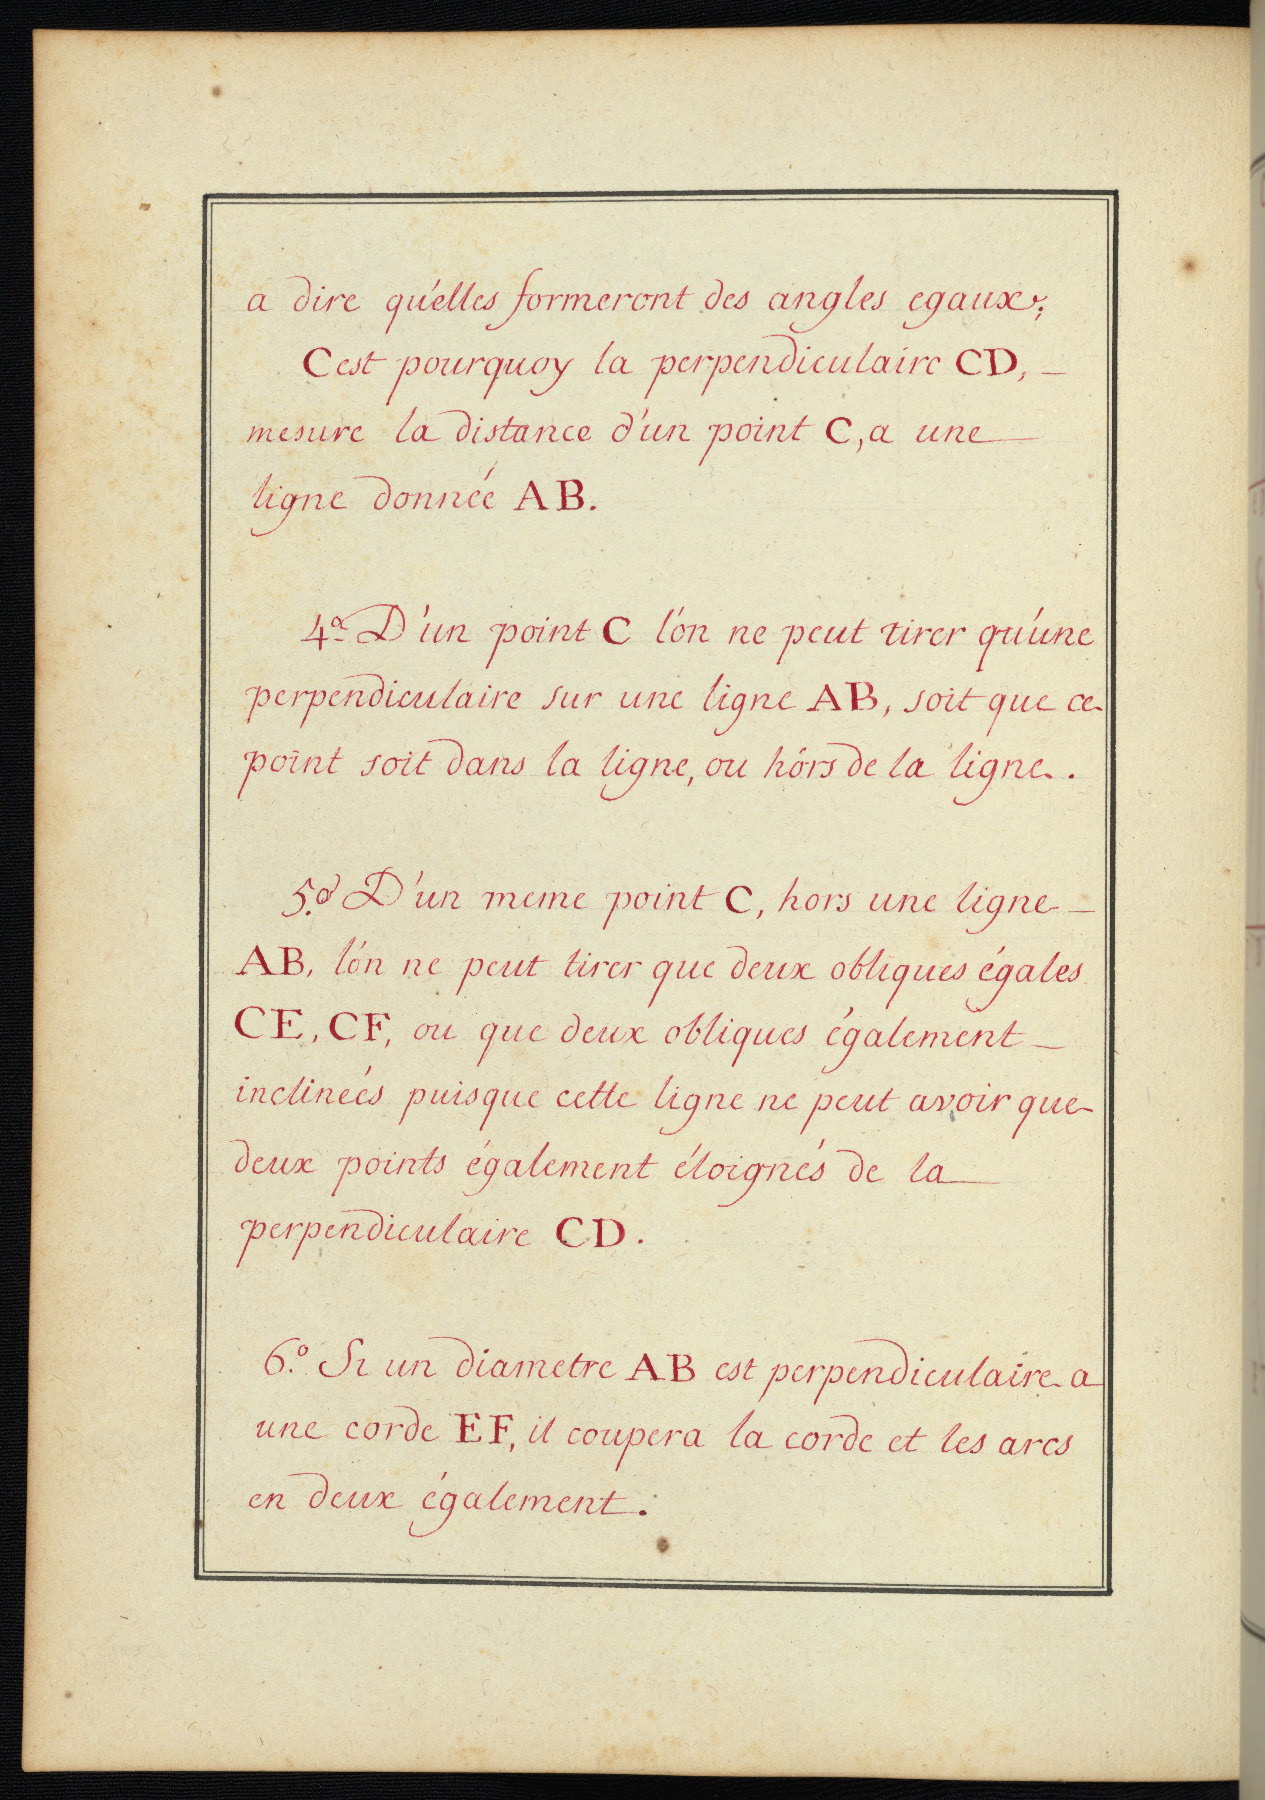 a dire qu'elles formeront des angles egaux;
C'est pourquoy la perpendiculaire CD,
mesure la distance d'un point C, a une
ligne donnée AB.
4º D'un point C l'on ne peut tirer qu'une
perpendiculaire sur une ligne AB, soit que ce
point soit dans la ligne, ou hórs de la ligne.
5º D'un meme point C, hors une ligne
AB, l'on ne peut tirer que deux obliques égales
CE, CF, ou que deux obliques également
inclineés puisque cette ligne ne peut avoir que
deux points également éloignés de la
perpendiculaire CD.
6º Si un diametre AB est perpendiculaire a
une corde EF, il coupera la corde et les arcs
en deux également.